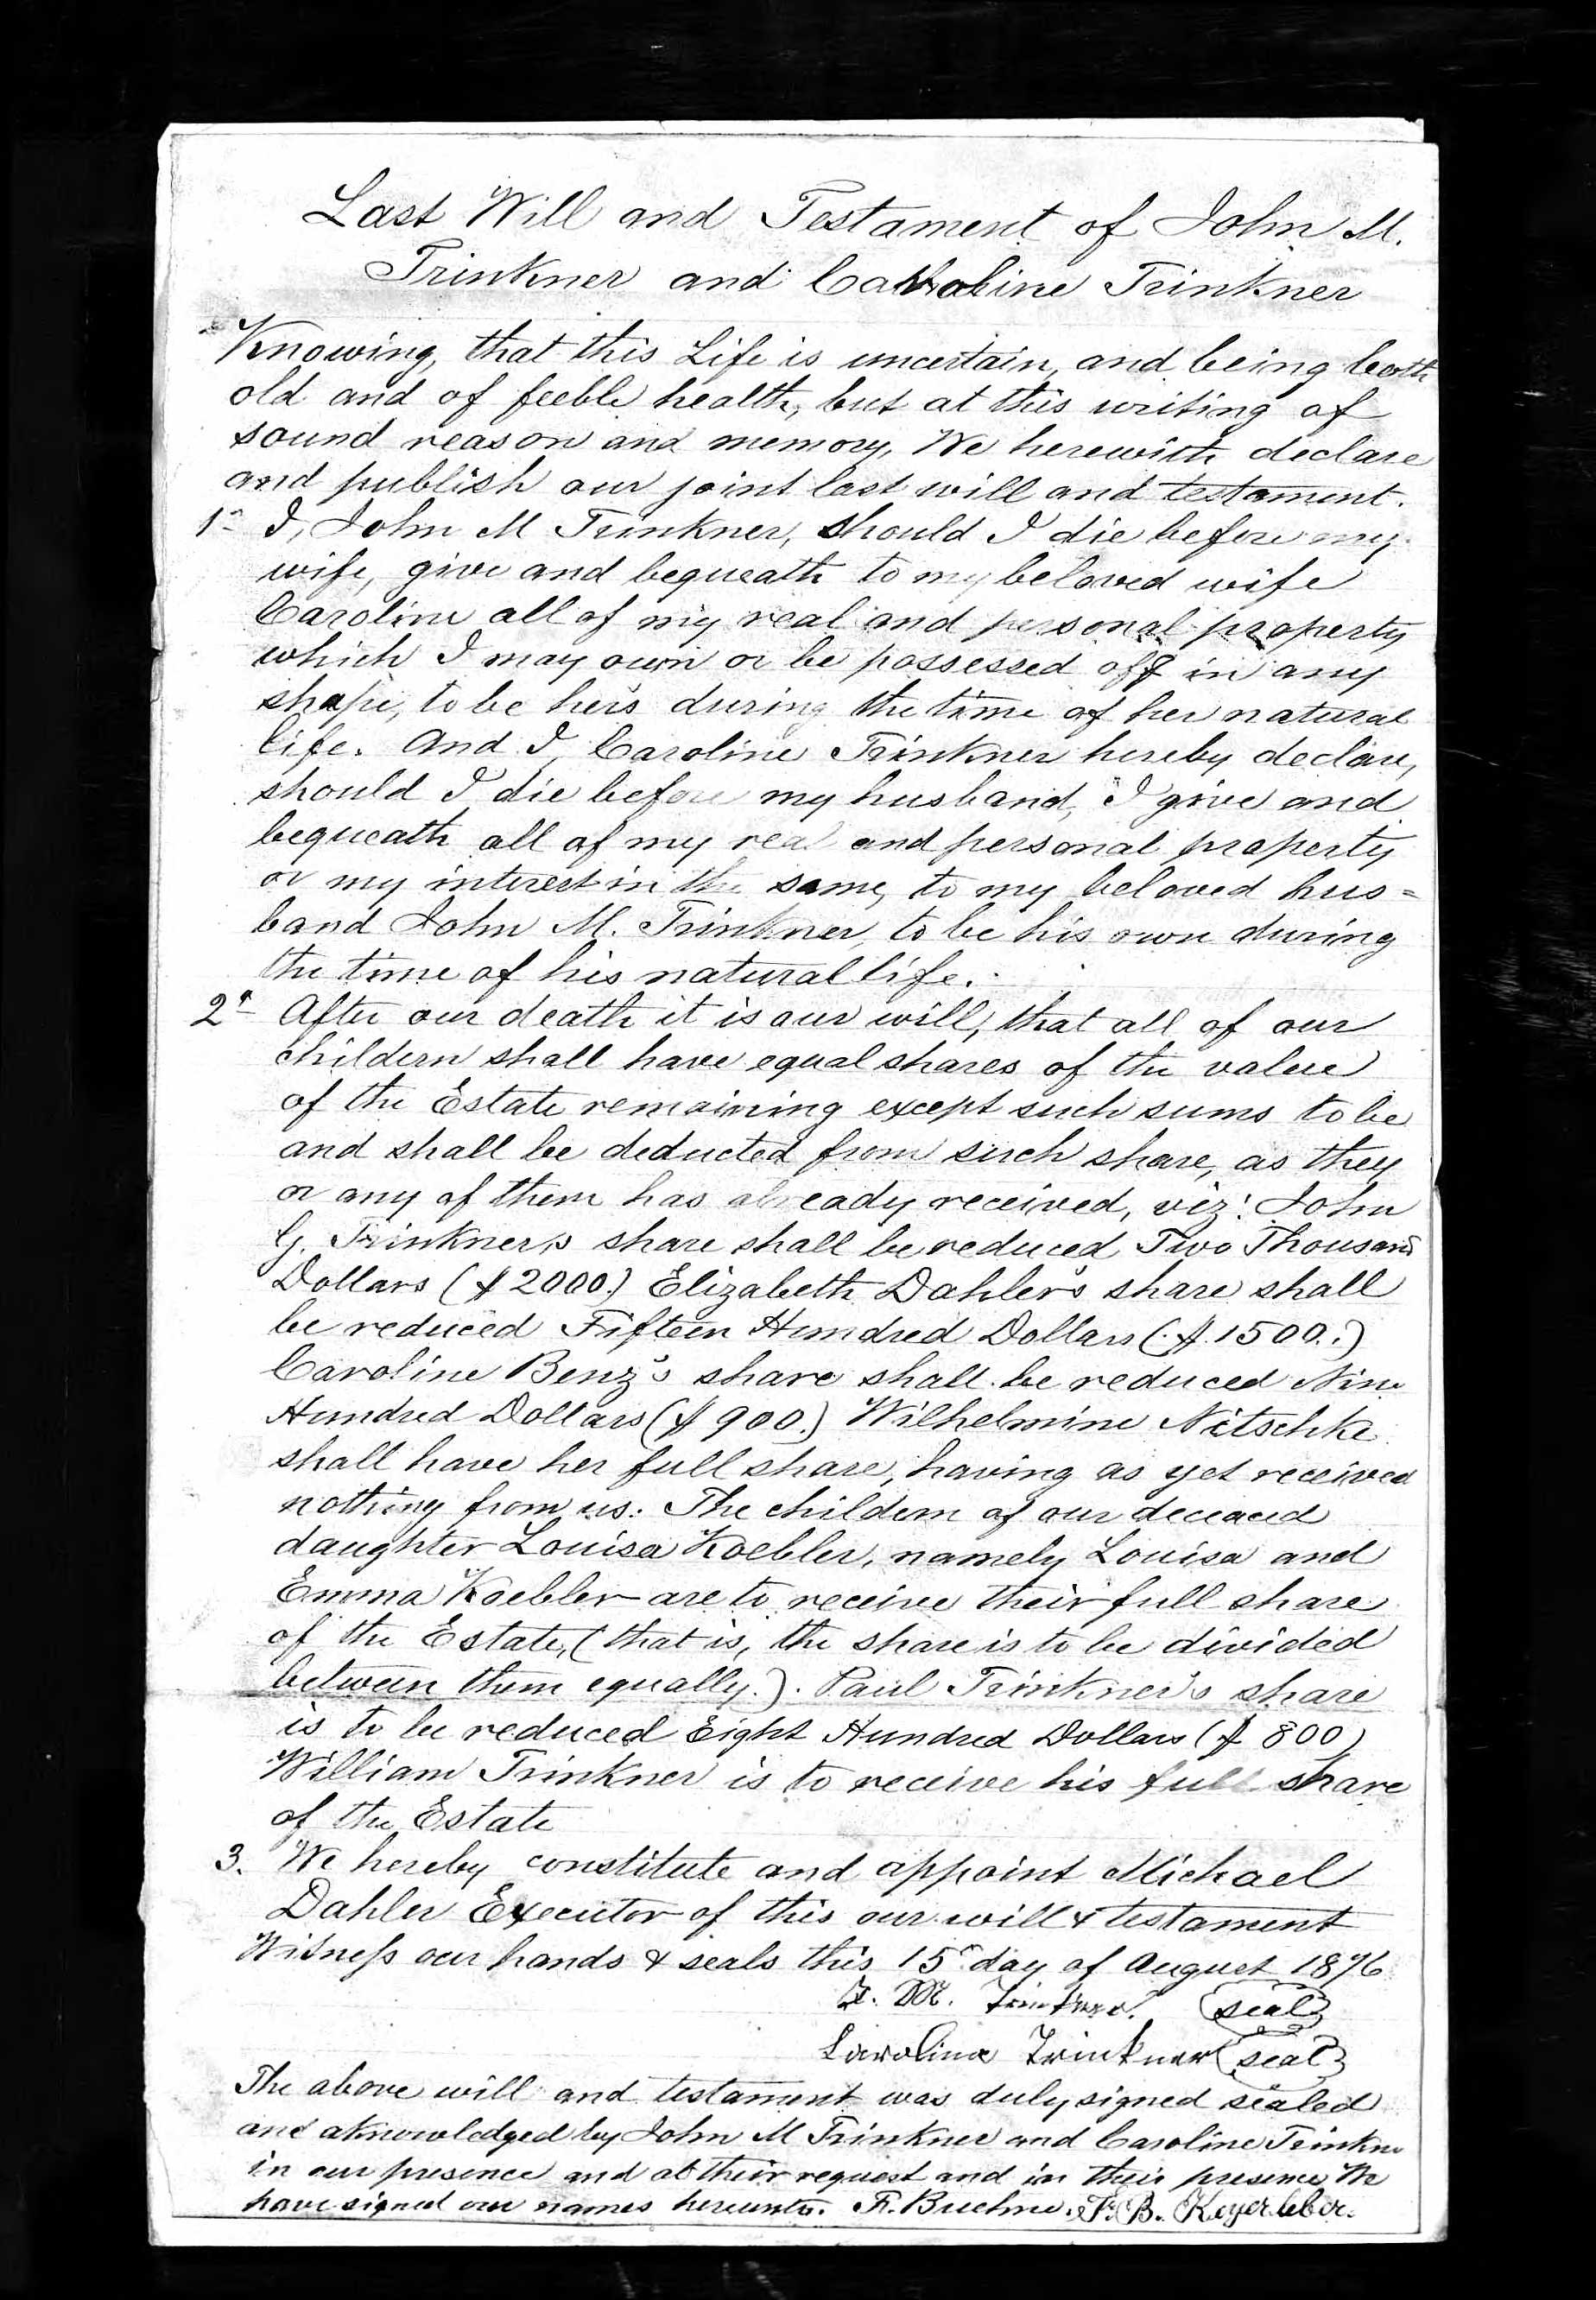 Last Will and Testament of John M.
Trinkner and Caroline Trinkner
Knowing, that this Life is uncertain, and being both
old and of feeble health, but at this writing of
sound reason and memory, We herewith declare
and publish our joint last will and testament.
1st I, John M Trinkner, should I die before my
wife, give and bequeath to my beloved wife
Caroline all of my real and personal property
which I may own or be possessed off in any
shape, to be her's during the time of her natural
life. And I, Caroline Trinkner hereby declare,
should I die before my husband, I give and
bequeath all of my real and personal property
or my interest in the same, to my beloved hus=
band John M. Trinkner, to be his own during
the time of his natural life.
2d After our death it is our will, that all of our
childern shall have equal shares of the value
of the Estate remaining except such sums to be
and shall be deducted from such share, as they
or any of them has already received, viz: John
G. Trinkner's share shall be reduced Two Thousand
Dollars ($2000.) Elizabeth Dahler's share shall
be reduced Fifteen Hundred Dollars ($1500.)
Caroline Benz's share shall be reduced Nine
Hundred Dollars ($900.) Wilhelmine Nitschke
shall have her full share, having as yet received
nothing from us. The childern of our deceaced
daughter Louisa Koebler, namely Louisa and
Emma Koebler are to receive their full share
of the Estate, (that is, the share is to be divided
between them equally.). Paul Trinkner's share
is to be reduced Eight Hundred Dollars ($800)
William Trinkner is to receive his full share
of the Estate
3. We hereby constitute and appoint Michael
Dahler Executor of this our will & testament
Witness our hands & seals this 15th day of August 1896
J. M. Trinkner. (seal)
Carolina Trinkner (seal)
The above will and testament was duly signed sealed
and aknowledged by John M Trinkner and Caroline Trinkner
in our presence and at their request and in their presence We
have signed our names hereunto. F. Buehne. F. B. Keyerleber.